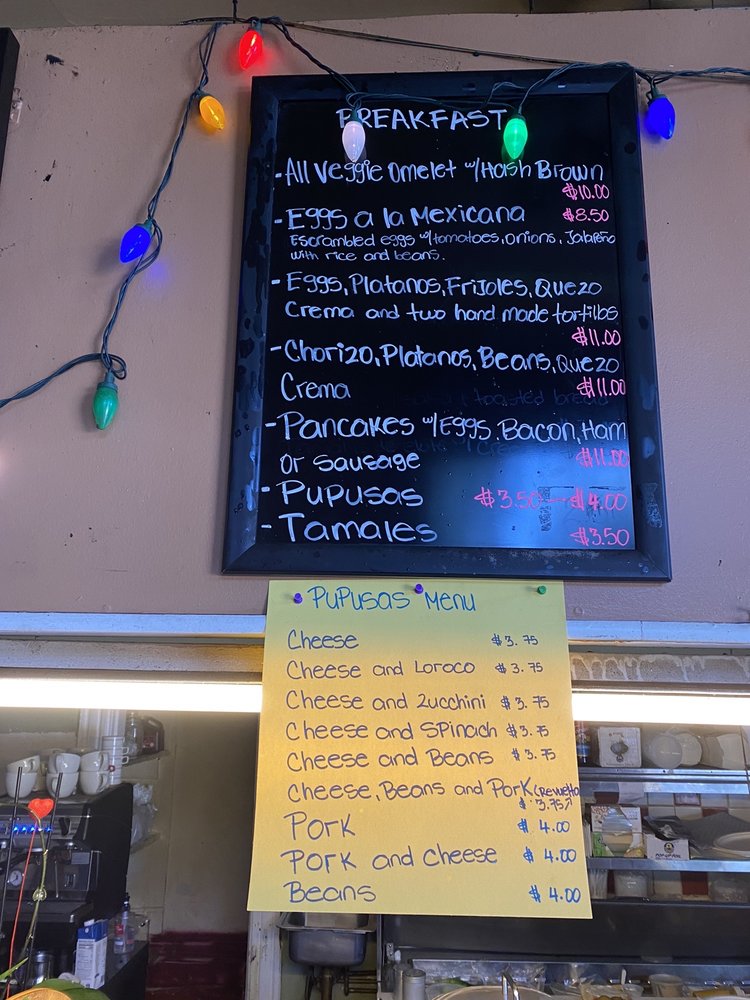 BREAKFAST
- All Veggie Omelet w/Hash Brown
$10.00
- Eggs a la Mexicana $8.50
Escrambled eggs w/tomatoes, onions, Jalapeño
with rice and beans.
- Eggs, Platanos, Frijoles, Quezo
Crema and two hand made tortillas
$11.00
- Chorizo, Platanos, Beans, Quezo
Crema $11.00
- Pancakes w/Eggs, Bacon, Ham
or sausage $11.00
- Pupusas $3.50 - $4.00
- Tamales $3.50
PUPUSAS MENU
Cheese $3.75
Cheese and Loroco $3.75
Cheese and Zucchini $3.75
Cheese and Spinach $3.75
Cheese and Beans $3.75
Cheese, Beans and Pork
$3.75
Pork $4.00
Pork and Cheese $4.00
Beans $4.00